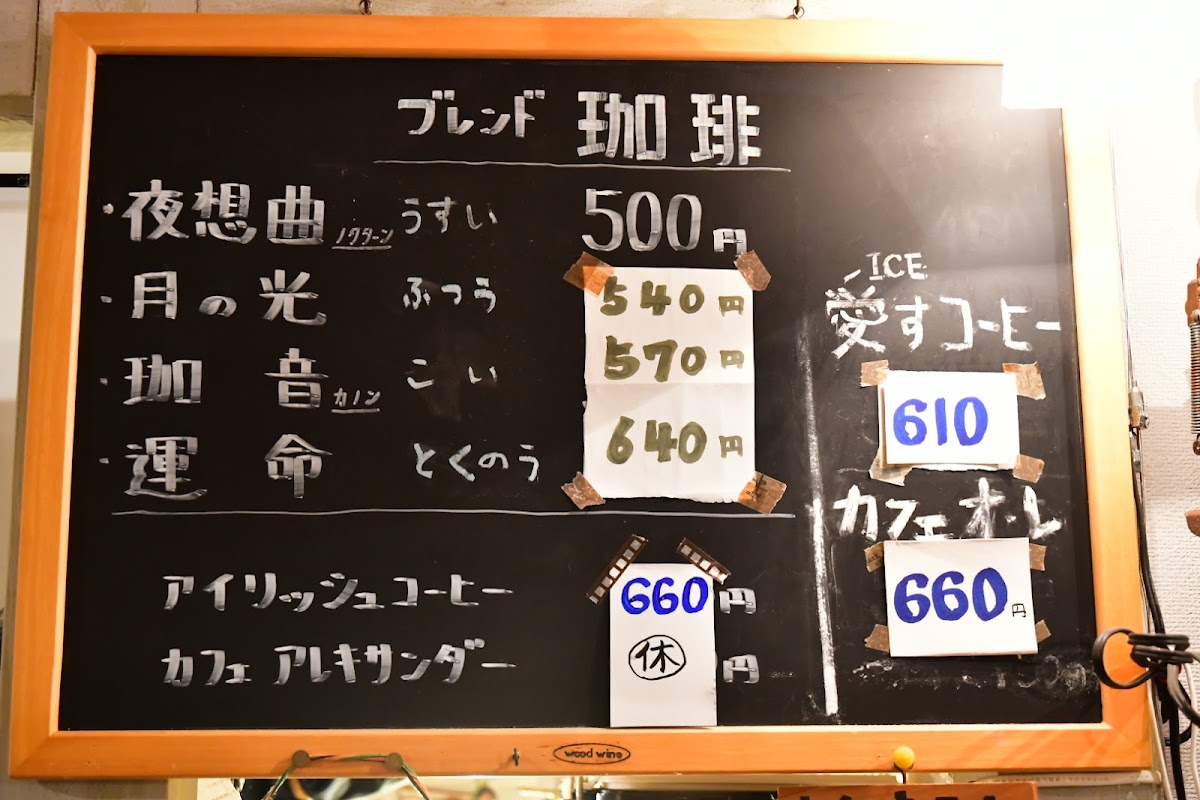 ブレンド 珈琲
・夜想曲 ノクターン うすい 500円
・月の光 ふつう 540円
・珈音 カノン こい 570円
・運命 とくのう 640円
アイリッシュコーヒー 660円
カフェ アレキサンダー 休 円
ICE
愛すコーヒー
610
カフェオ・レ
660円
wood wine